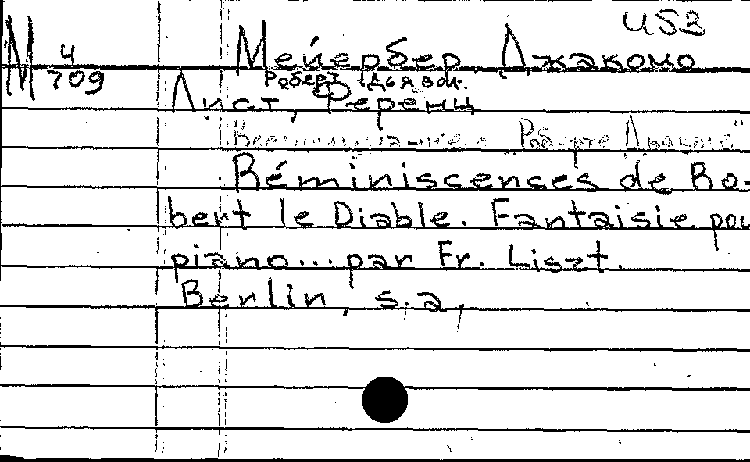 изв
М 4/709
Мейербер, Джакомо
Роберт-Дьявол.
Лист, Ференц
Воспоминание о "Роберте Дьяволе"
Réminiscences de Ro-
bert le Diable. Fantaisie pou
piano... par Fr. Liszt.
Berlin, s.a,